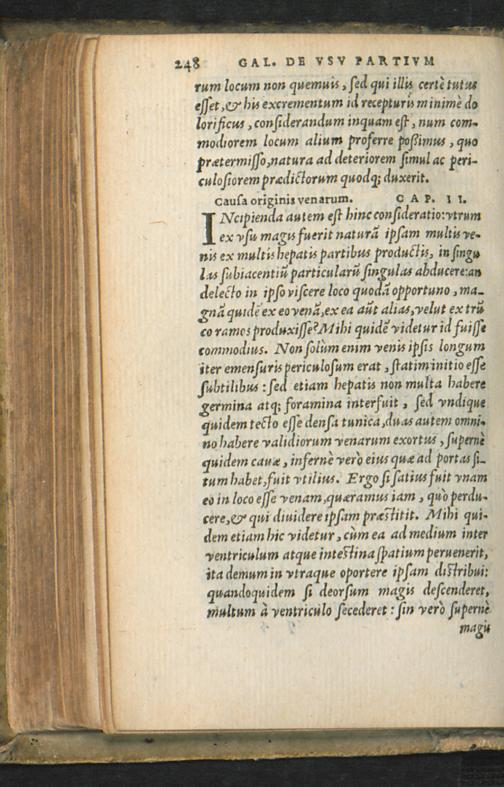 248 GAL. DE VSV PARTIVM
rum locum non quemuis, sed qui illis certè tutus
esset, & his excrementum id recepturis minimè do
lorificus, considerandum inquam est, num com-
modiorem locum alium proferre poßimus, quo
prætermisso, natura ad deteriorem simul ac peri-
culosiorem prædictorum quodq; duxerit.
Causa originis venarum. CAP. II.
INcipienda autem est hinc consideratio: vtrum
ex vsu magis fuerit naturã ipsam multis ve-
nis ex multis hepatis partibus productis, in singu
las subiacentiũ particularũ singulas abducere: an
delecto in ipso viscere loco quodã opportuno, ma-
gnã quidẽ ex eo venã, ex ea aũt alias, velut ex trũ
co ramos produxisse? Mihi quidẽ videtur id fuisse
commodius. Non solùm enim venis ipsis longum
iter emensuris periculosum erat, statim initio esse
subtilibus: sed etiam hepatis non multa habere
germina atq; foramina interfuit, sed vndique
quidem tecto esse densa tunica, duas autem omni-
no habere validiorum venarum exortus, supernè
quidem cauæ, infernè verò eius quæ ad portas si-
tum habet, fuit vtilius. Ergo si satius fuit vnam
eo in loco esse venam, quæramus iam, quò perdu-
cere, & qui diuidere ipsam præstitit. Mihi qui-
dem etiam hic videtur, cùm ea ad medium inter
ventriculum atque intestina spatium peruenerit,
ita demum in vtraque oportere ipsam distribui:
quandoquidem si deorsum magis descenderet,
multum à ventriculo secederet: sin verò supernè
magis